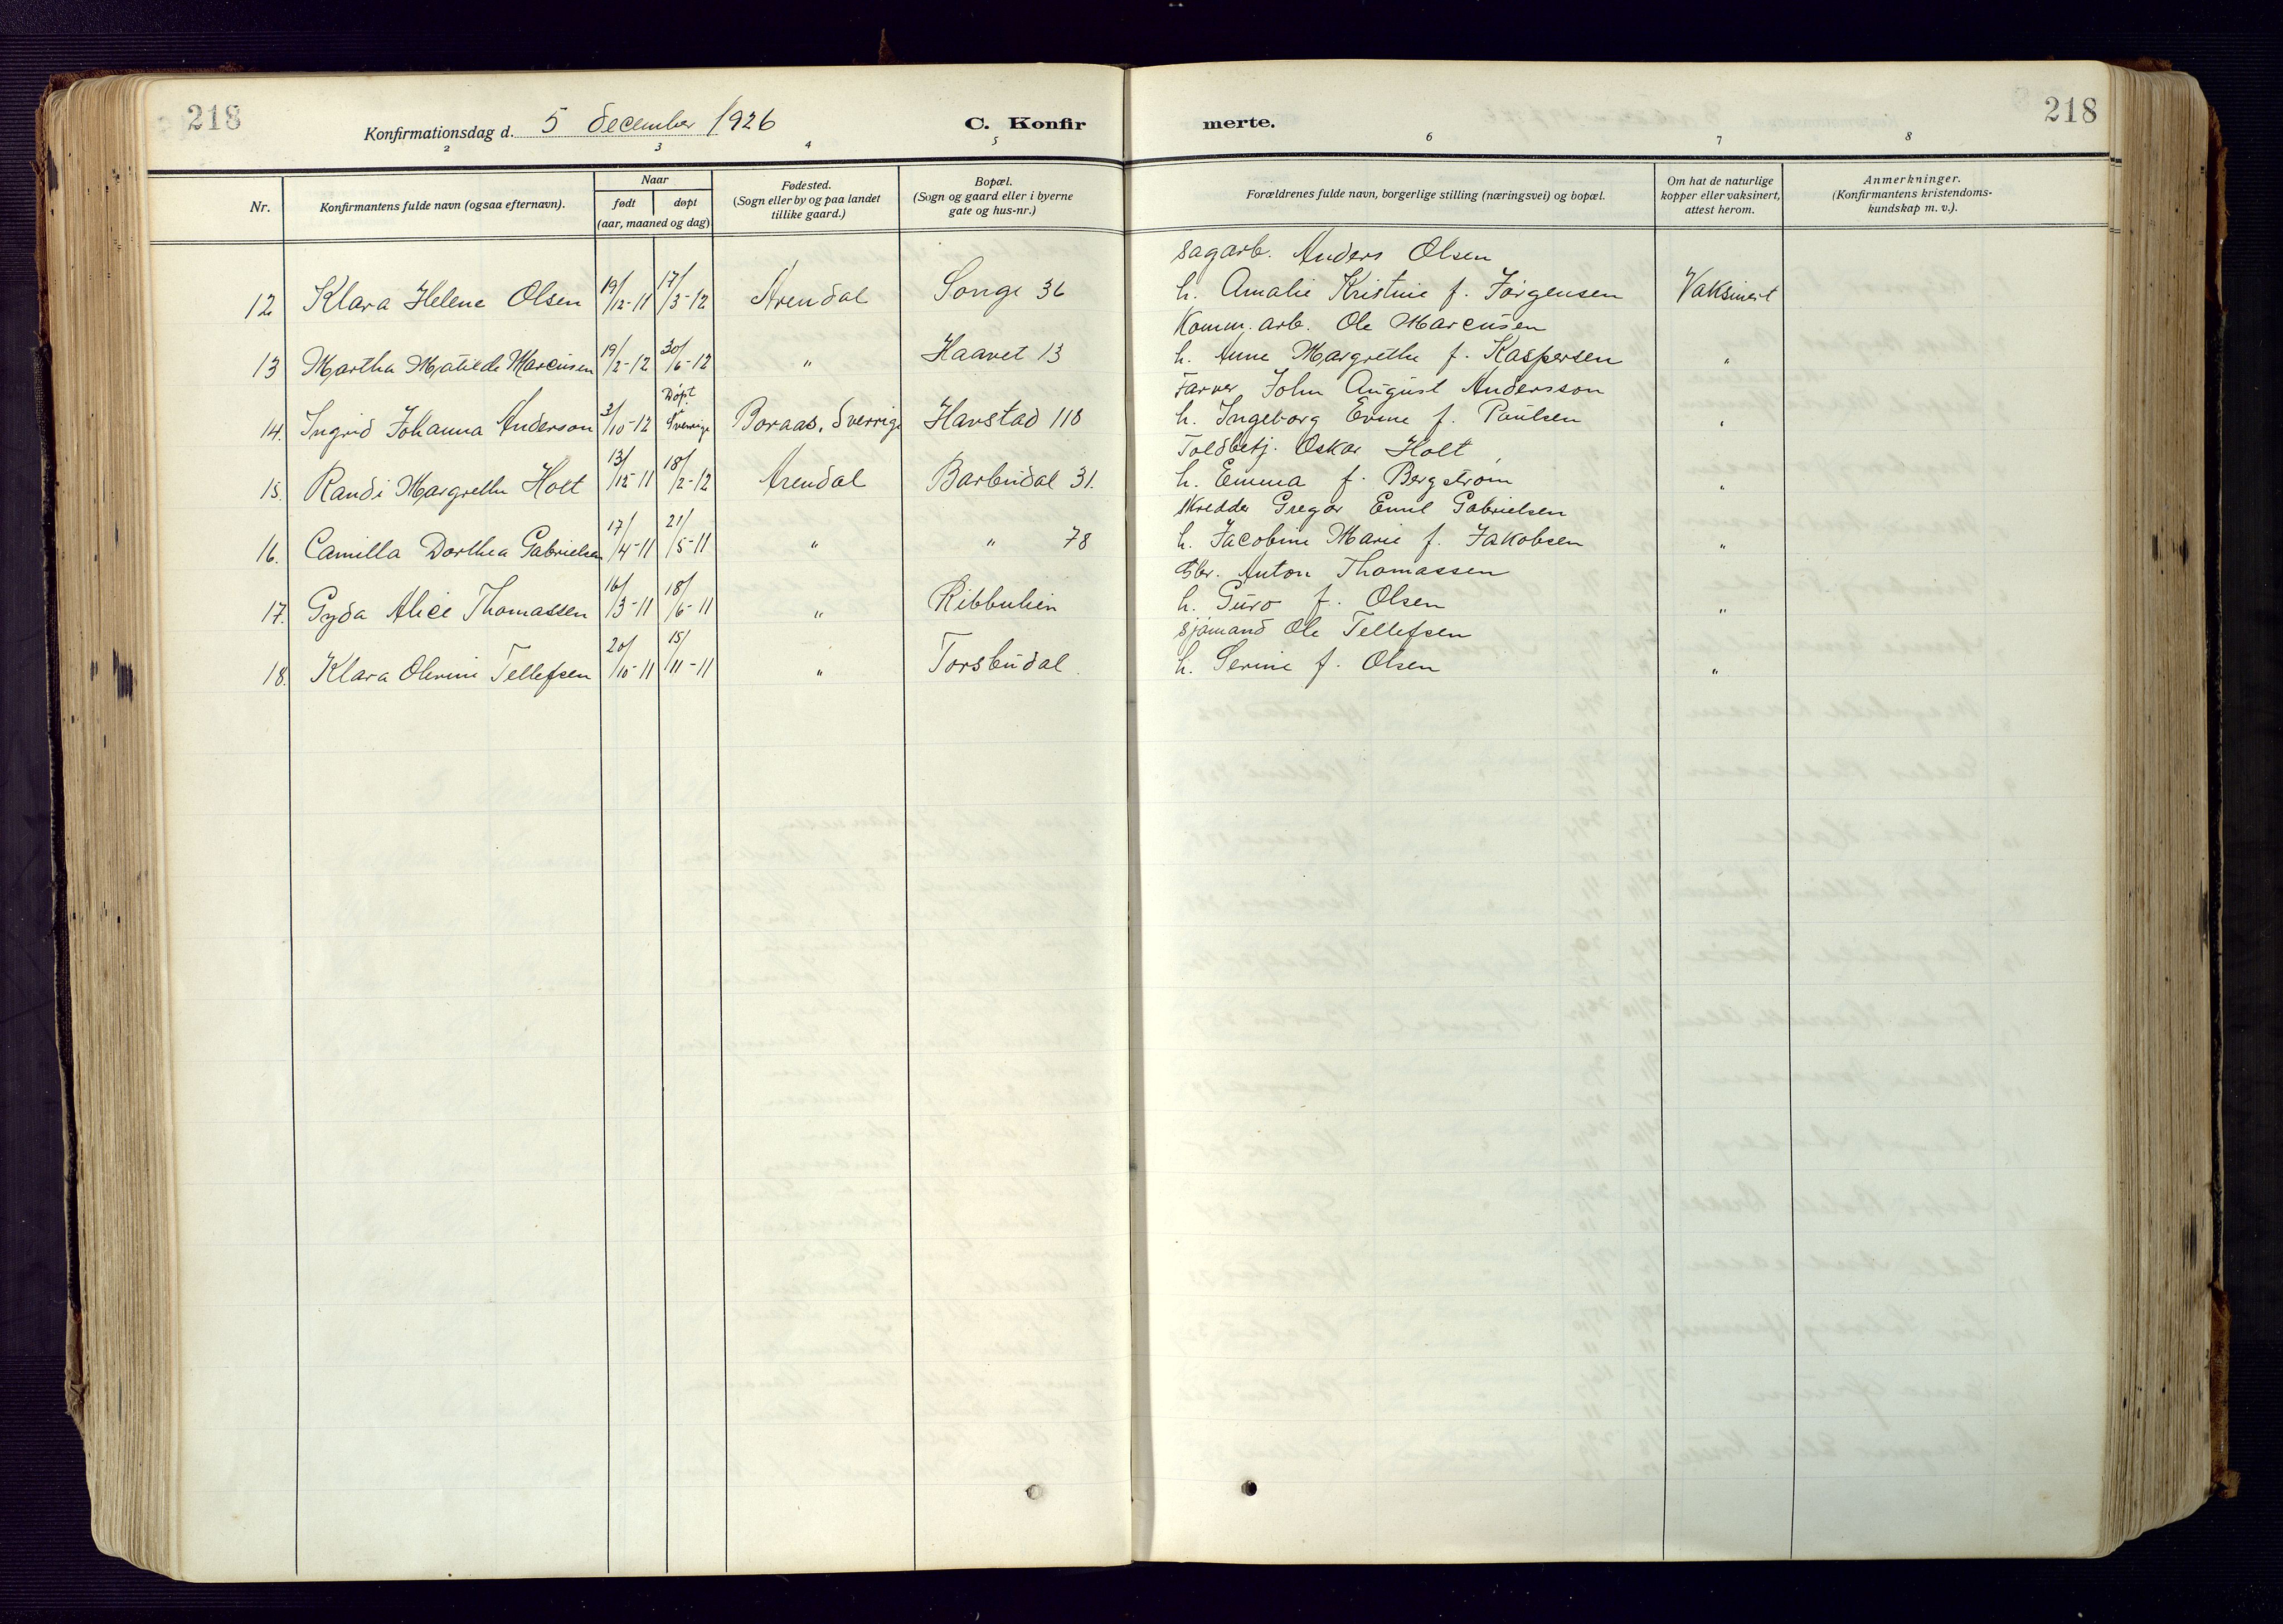 218
Konfirmationsdag d. 5 december 1926
C. Konfirmerte.
218
2 3 4 5 6 7 8
Nr.
Konfirmantens fulde navn (ogsaa efternavn).
Naar
født døpt
(aar, maaned og dag)
Fødested.
(Sogn eller by og paa landet
tillike gaard.)
Bopæl.
(Sogn og gaard eller i byerne
gate og hus-nr.)
Forældrenes fulde navn, borgerlige stilling (næringsvei) og bopæl.
Om hat de naturlige
kopper eller vaksinert,
attest herom.
Anmerkninger.
(Konfirmantens kristendoms-
kundskap m. v.).
Sagarb. Anders Olsen
12 Klara Helene Olsen 19/12-11 17/3-12 Arendal Songe 36 h. Amalie Kristine f. Jørgensen Vaksinert
Komm. arb. Ole Marcusen
13 Martha Matilde Marcusen 19/2-12 30/6-12 " Haavet 13 h. Anne Margrethe f. Kaspersen "
Farver John August Andersson
14. Ingrid Johanna Anderson 3/10-12 Døpt i Sverrige Boraas, Sverrige Havstad 118 h. Ingeborg Evine f. Paulsen "
Toldbetj. Oskar Holt
15. Randi Margrethe Holt 13/12-11 18/2-12 Arendal Barbudal 31. h. Emma f. Bergstrøm "
Skredder Gregor Emil Gabrielsen
16. Camilla Dorthea Gabrielsen 17/4-11 21/5-11 " " 78 h. Jacobine Marie f. Jakobsen "
Anton Thomassen
17. Gyda Alice Thomassen 16/3-11 18/6-11 " Ribbulien h. Guro f. Olsen "
Sjømand Ole Tellefsen
18. Klara Olevine Tellefsen 20/10-11 15/11-11 " Torsbudal h. Serine f. Olsen "